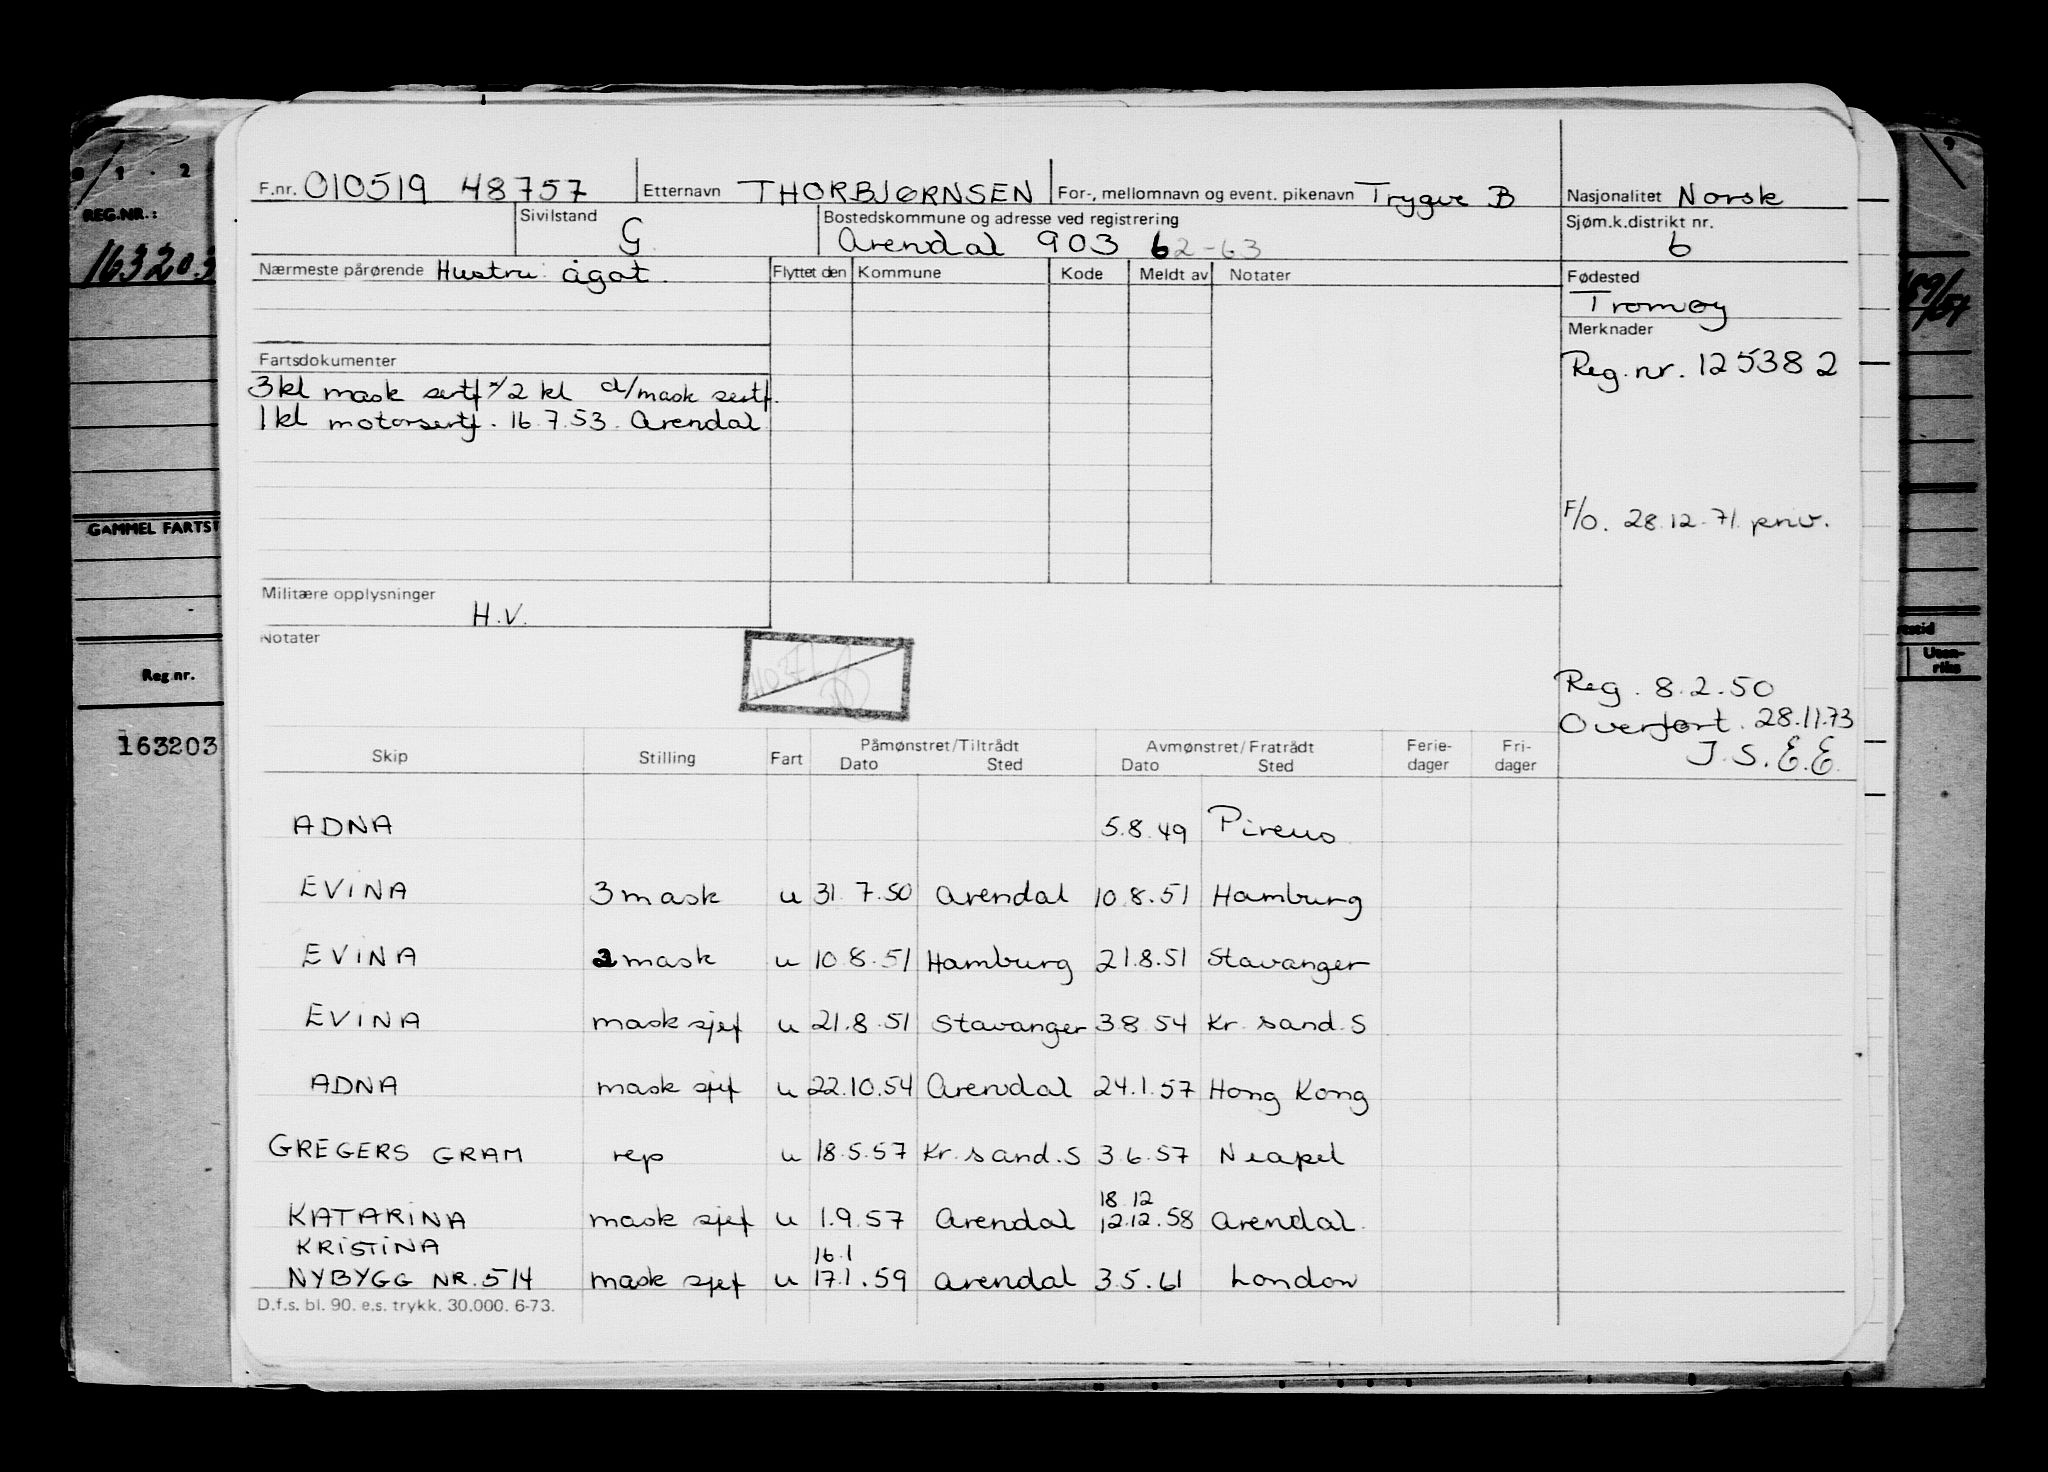 F.nr. 010519 48757 Etternavn THORBJØRNSEN For-, mellomnavn og event. pikenavn Trygve B Nasjonalitet Norsk
Sivilstand G Bostedskommune og adresse ved registrering Sjøm.k.distrikt nr.
Arendal 903 62-63 6
Nærmeste pårørende Hustru: Ågot. Flyttet den Kommune Kode Meldt av Notater Fødested
Tromøy
Merknader
Reg.nr. 125382
Fartsdokumenter
3 kl mask sertf 2 kl d/mask sertf.
1 kl motorsertf. 16.7.53. Arendal
F/O. 28.12.71. priv.
Militære opplysninger
H.V.
Notater
Reg. 8.2.50
Overført. 28.11.73
J.S.E.E.
Skip Stilling Fart Påmønstret/Tiltrådt Dato Sted Avmønstret/Fratrådt Dato Sted Ferie-dager Fri-dager
ADNA 5.8.49 Pireus
EVINA 3 mask u 31.7.50 Arendal 10.8.51 Hamburg
EVINA 2 mask u 10.8.51 Hamburg 21.8.51 Stavanger
EVINA mask sjef u 21.8.51 Stavanger 3 8.54 Kr. sand. S
ADNA mask sjef u 22.10.54 Arendal 24.1.57 Hong Kong
GREGERS GRAM rep u 18.5.57 Kr. sand. S 3.6.57 Neapel
18.12
KATARINA mask sjef u 1.9.57 Arendal 12.12.58 Arendal.
KRISTINA 16.1
NYBYGG NR. 514 mask sjef u 17.1.59 Arendal 3.5.61 London
D.f.s. bl. 90. e.s. trykk. 30.000. 6-73.
REG.NR.:
163203
GAMMEL FARTST
Reg.nr.
163203
Uten-
riks